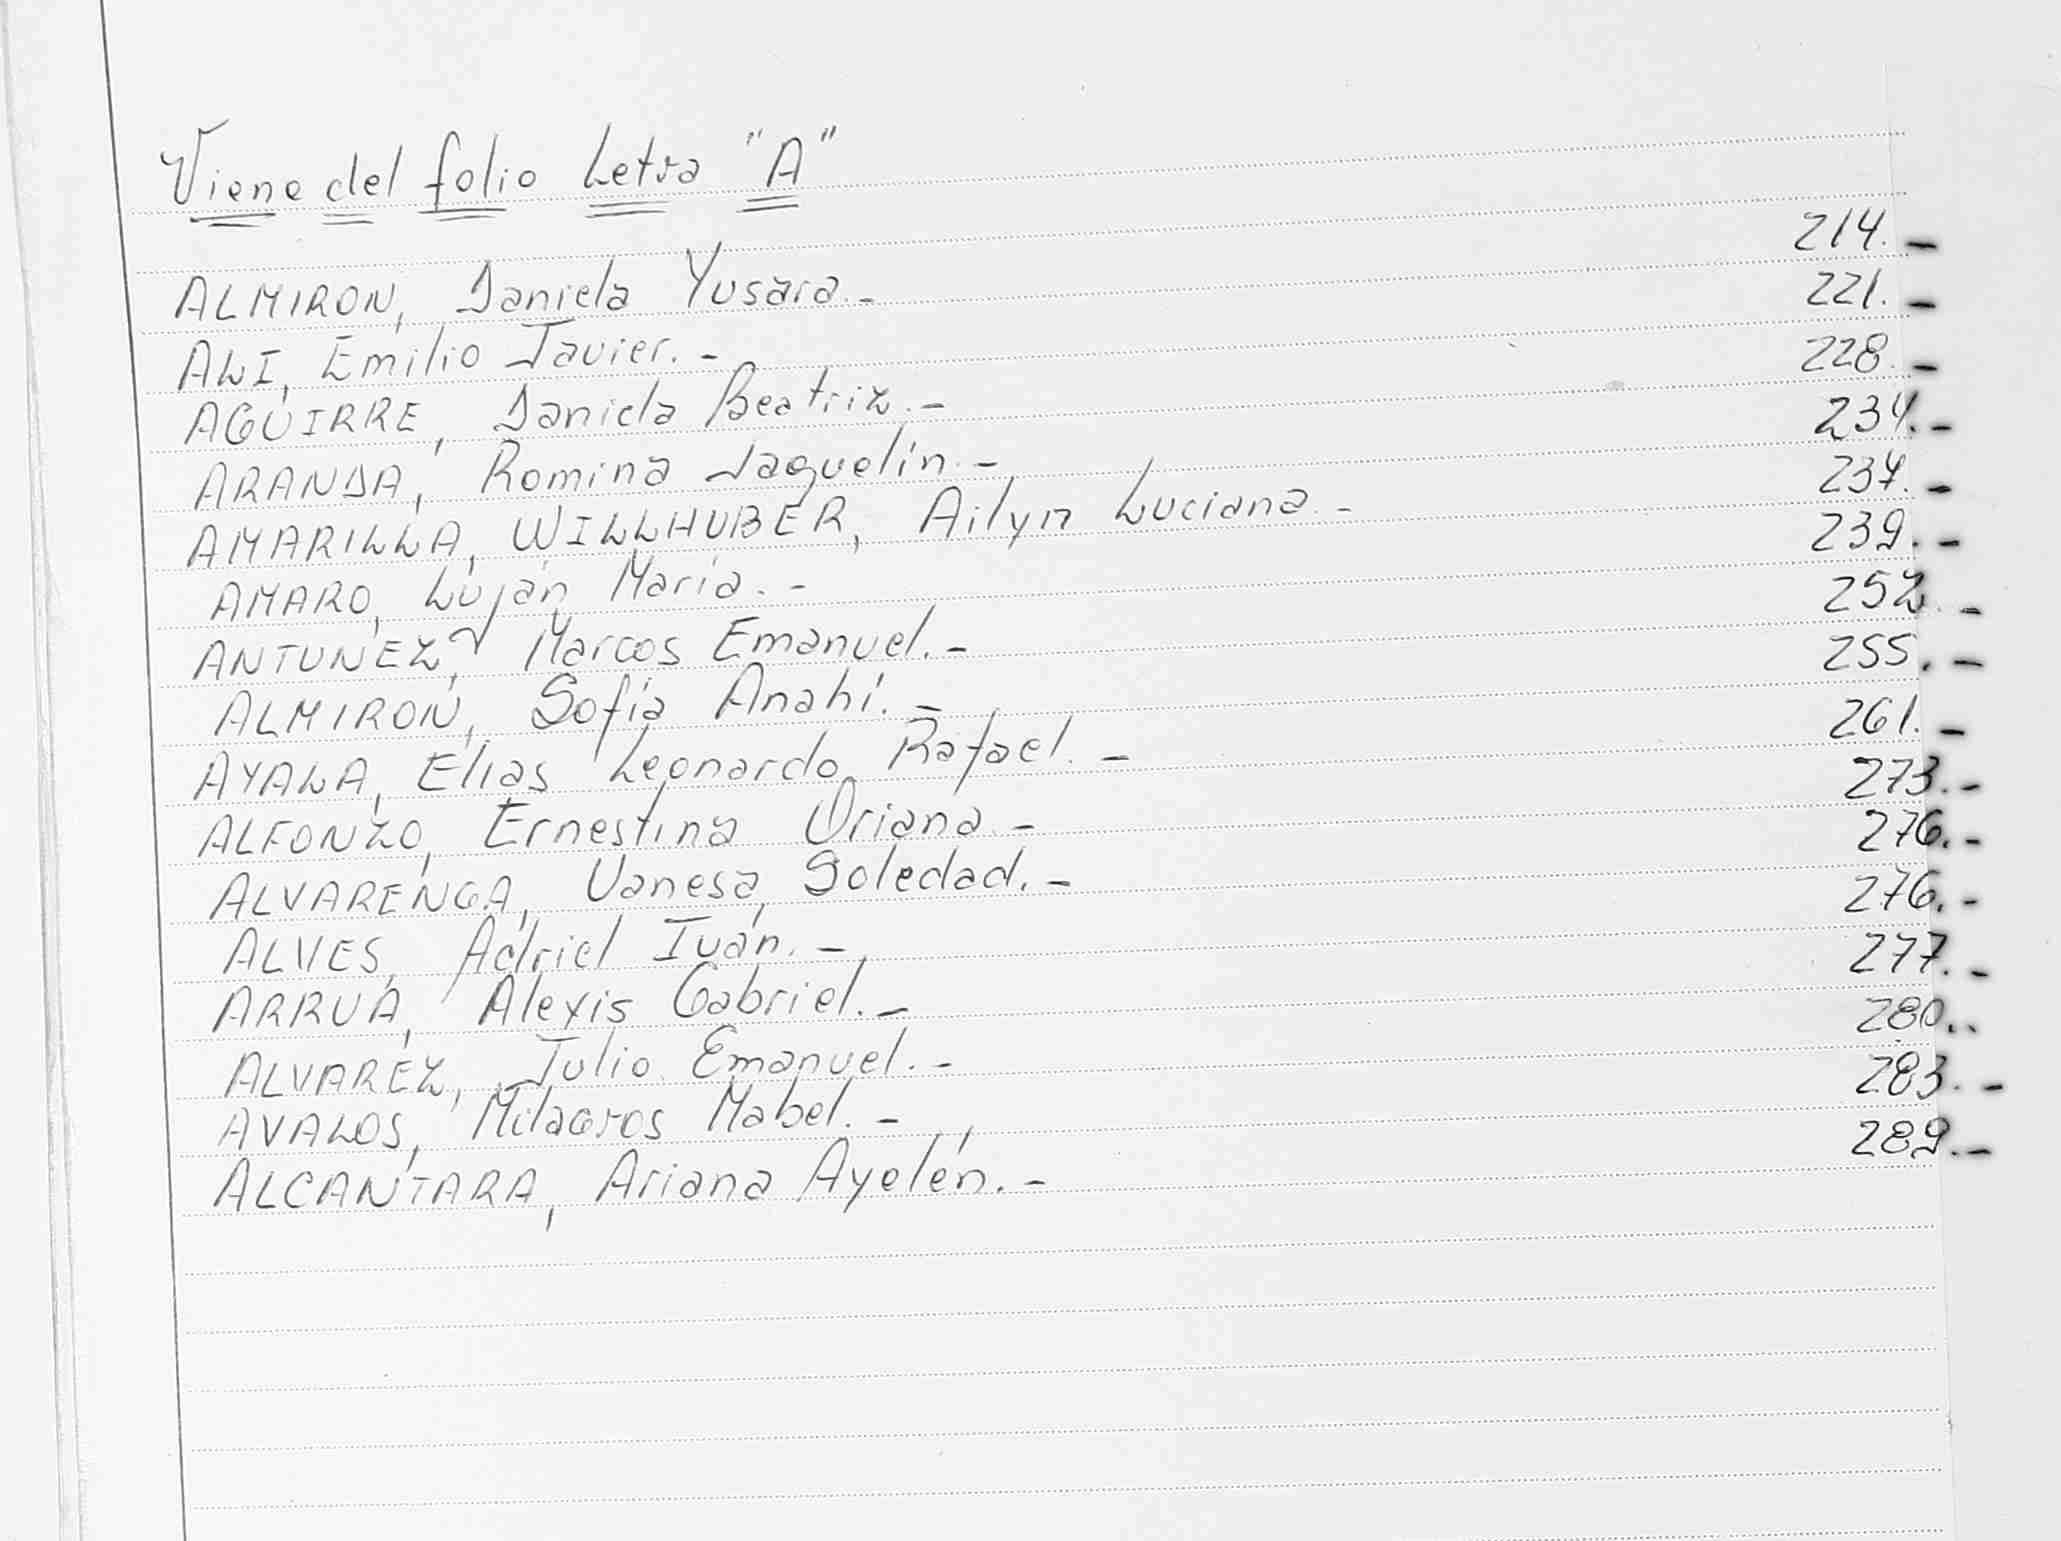 Viene del folio Letra "A"
ALMIRON, Daniela Yusara.- 214.-
ALI, Emilio Javier.- 221.-
AGUIRRE, Daniela Beatriz.- 228.-
ARANDA, Romina Jaquelín.- 234.-
AMARILLA, WILLHUBER, Ailyn Luciana.- 237.-
AMARO, Luján María.- 239.-
ANTUNEZ, Marcos Emanuel.- 252.-
ALMIRON, Sofía Anahí.- 255.-
AYALA, Elías Leonardo Rafael.- 261.-
ALFONZO, Ernestina Oriana.- 273.-
ALVARENGA, Vanesa Soledad.- 276.-
ALVES, Adriel Iván.- 276.-
ARRUA, Alexis Gabriel.- 277.-
ALVAREZ, Julio Emanuel.- 280.-
AVALOS, Milagros Mabel.- 283.-
ALCANTARA, Ariana Ayelén.- 289.-